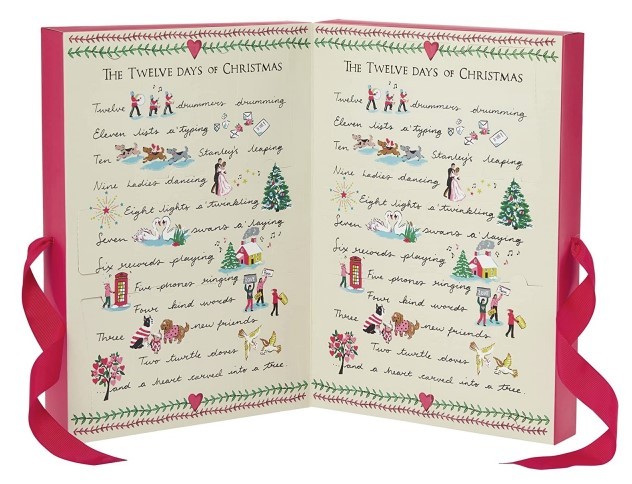 THE TWELVE DAYS OF CHRISTMAS
Twelve drummers drumming
Eleven lists a'typing
Ten Stanley's leaping
Nine Ladies dancing
Eight lights a'twinkling
Seven swans a'laying
Six records playing
Five phones ringing
Four kind words
Three new friends
Two turtle doves
...and a heart carved into a tree.
THE TWELVE DAYS OF CHRISTMAS
Twelve drummers drumming
Eleven lists a'typing
Ten Stanley's leaping
Nine Ladies dancing
Eight lights a'twinkling
Seven swans a'laying
Six records playing
Five phones ringing
Four kind words
Three new friends.
Two turtle doves
...and a heart carved into a tree.